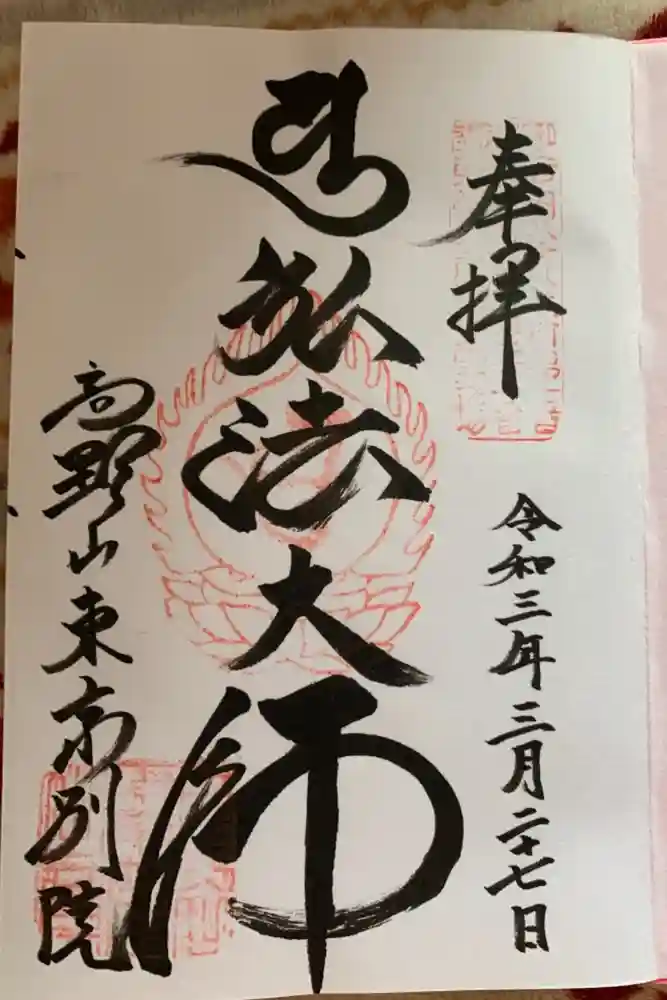 奉拝
令和三年三月二十七日
弘法大師
高野山東京別院